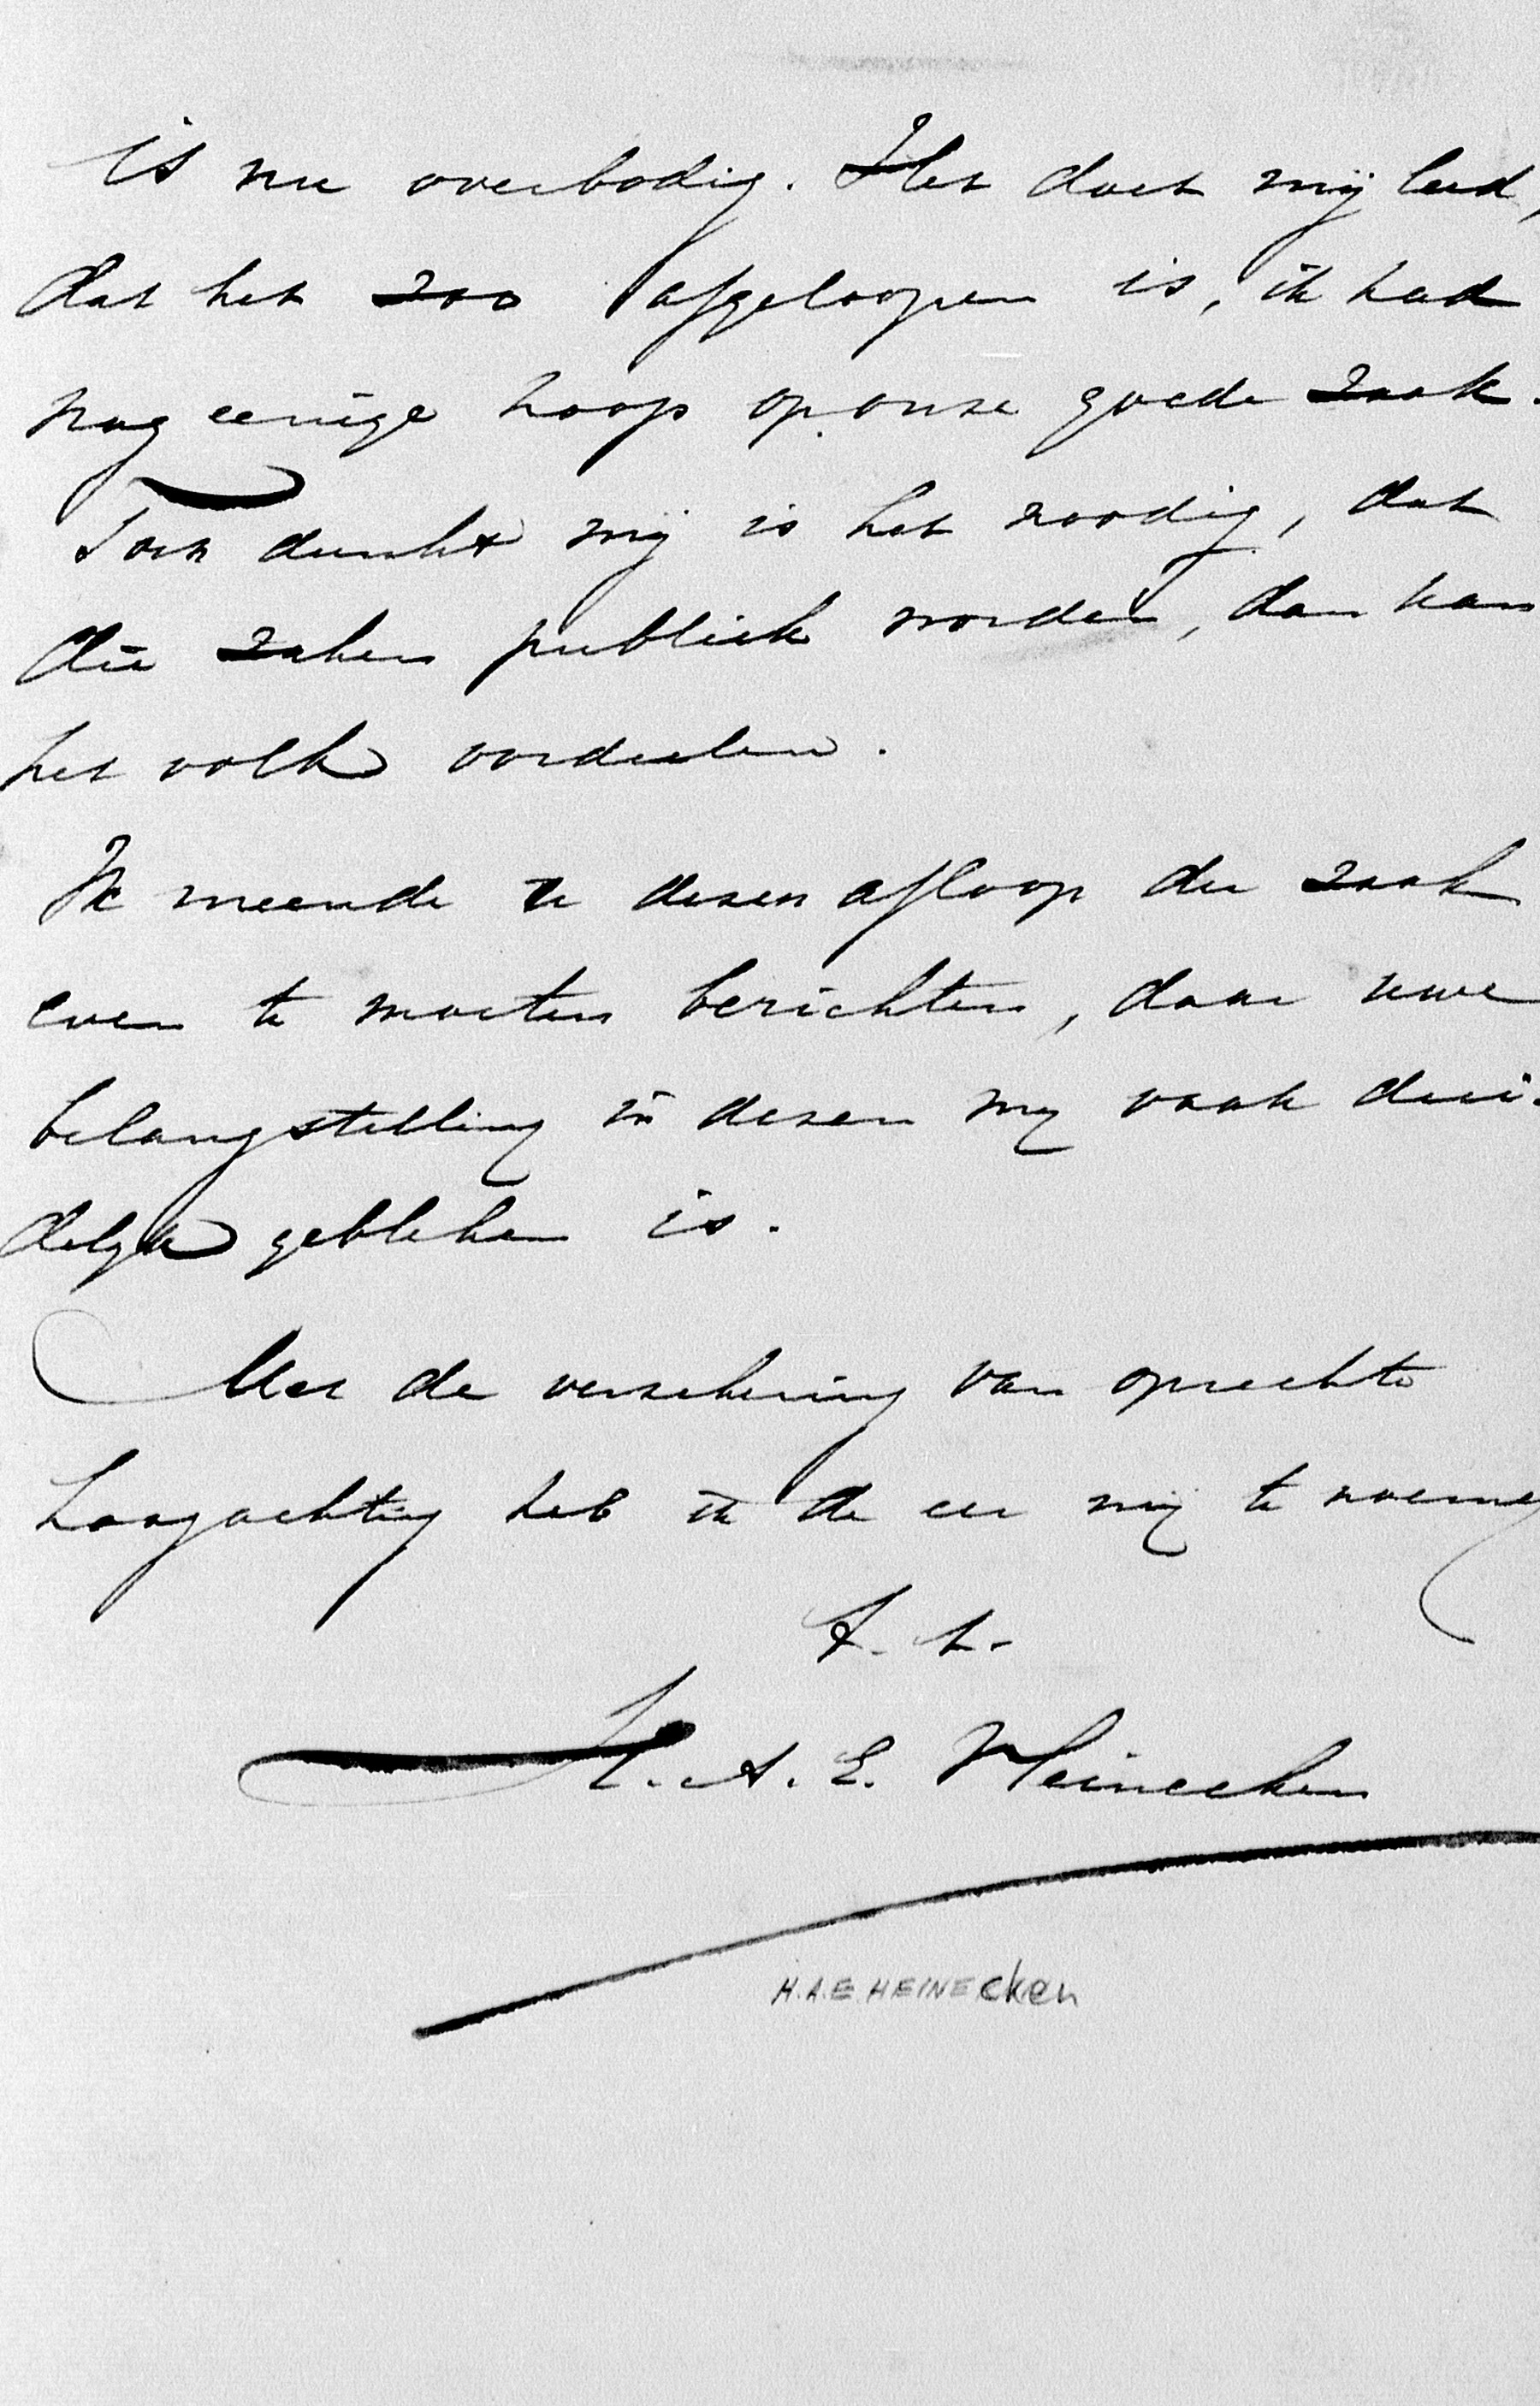 is nu overbodig. Het doet mij leed,
dat het zoo afgeloopen is, ik had
nog eenige hoop op onze goede zaak.
Toch dunkt mij is het noodig, dat
die zaken publiek worden, dan kan
het volk oordeelen.
Ik meende u dezen afloop der zaak
even te moeten berichten, daar uwe
belangstelling in dezen mij vaak dui-
delijk gebleken is.
Met de verzekering van oprechte
hoogachting heb ik de eer mij te noemen
H. A. E. Heinecken
H.A.E. HEINEcken